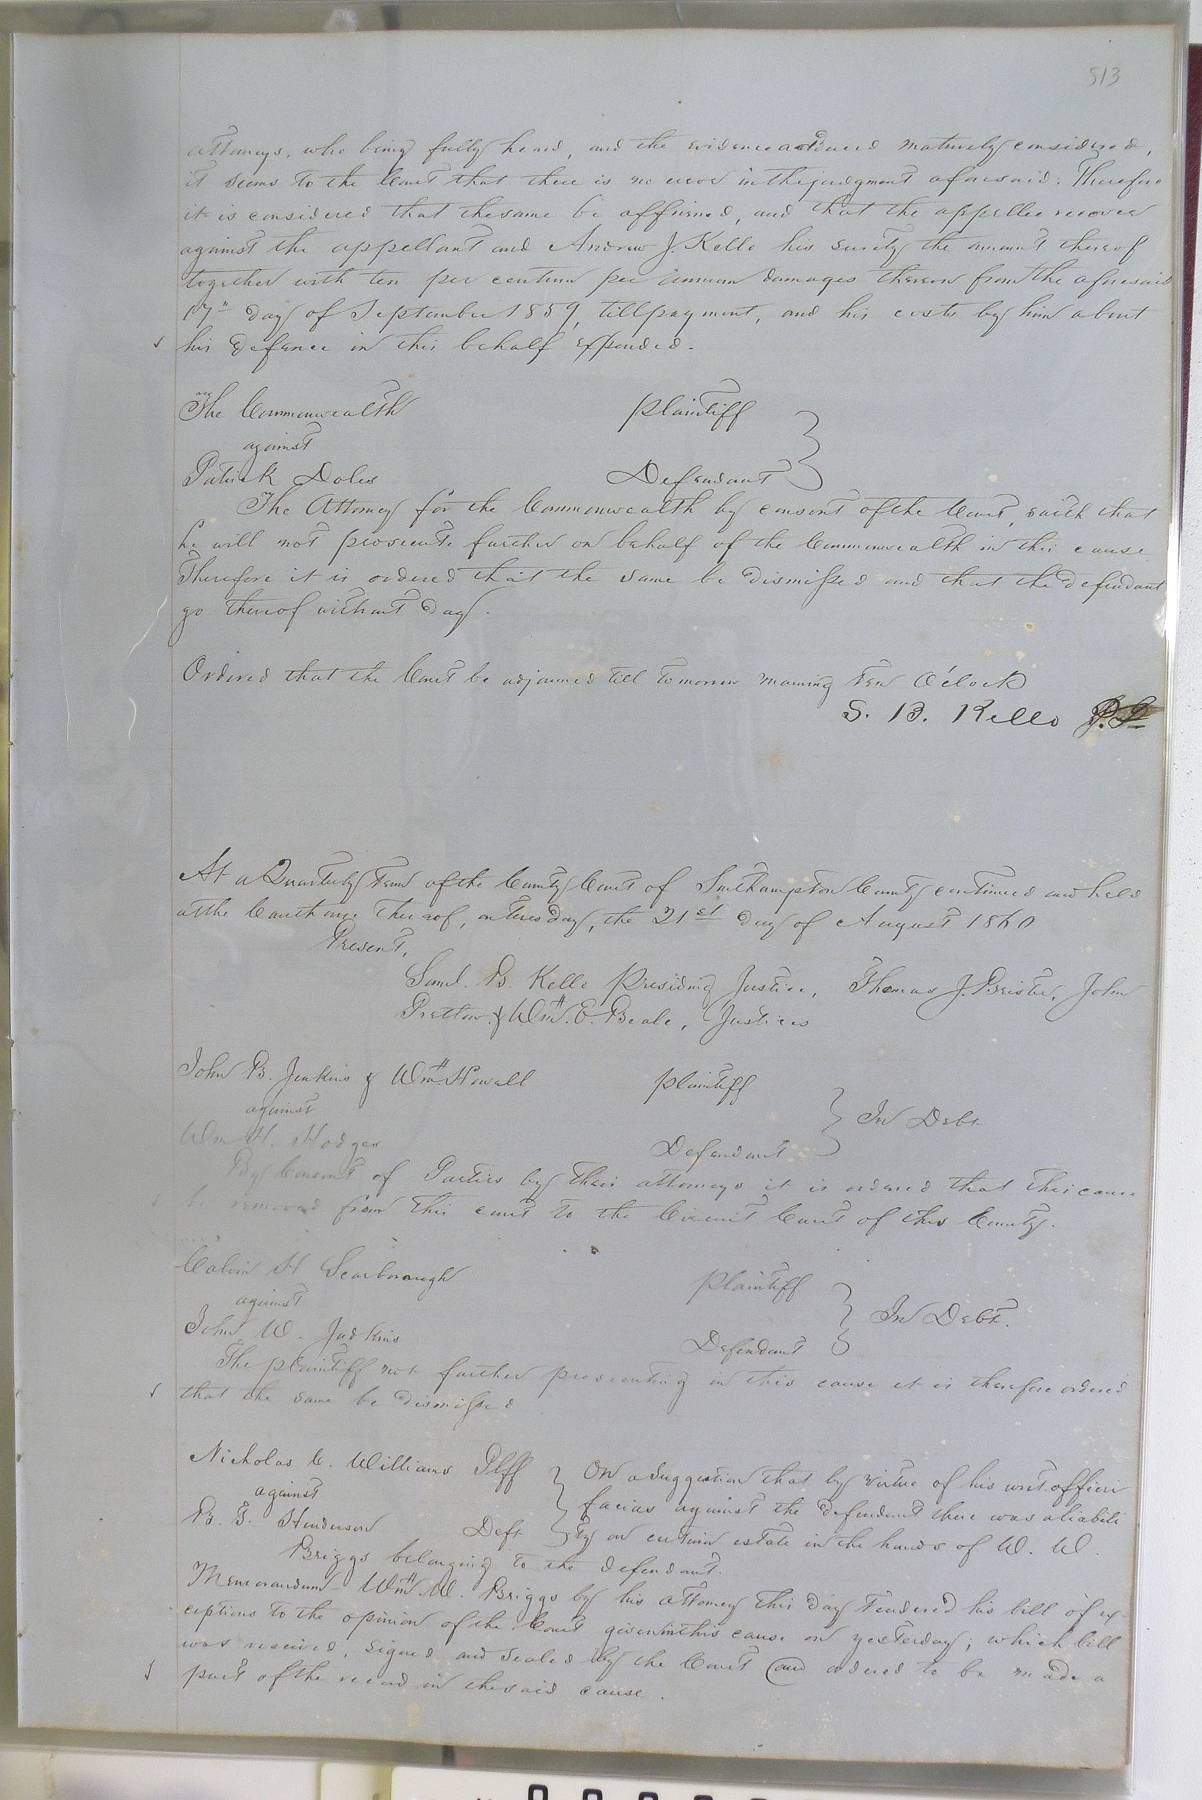 513
attorneys, who being fully heard, and the evidence adduced maturely considered,
it seems to the Court that there is no error in the judgment aforesaid: Therefore
it is considered that the same be affirmed, and that the appellee recover
against the appellant and Andrew J. Kello his surety the amount thereof
together with ten per centum per annum damages thereon from the aforesaid
17th day of September 1859, till payment, and his costs by him about
his defence in this behalf expended.
The Commonwealth Plaintiff
against
Patrick Doles Defendant
The Attorney for the Commonwealth by consent of the Court, saith that
he will not prosecute further on behalf of the Commonwealth in this cause
Therefore it is ordered that the same be dismissed and that the defendant
go thereof without day.
Ordered that the Court be adjourned till tomorrow morning ten O'clock
S. B. Kello P. J.
At a Quarterly Term of the County Court of Southampton County continued and held
at the Courthouse thereof, on Tuesday, the 21st day of August 1860
Present,
Saml. B. Kello Presiding Justice, Thomas J. Pretlow, John
Pretlow & Wm. E. Beale, Justices
John B. Jenkins & Wm. H. Howell Plaintiff
against In Debt
Wm H. Hodges Defendant
By Consent of Parties by their attorneys it is ordered that this cause
be removed from this court to the Circuit Court of this County.
Calvin H Scarborough Plaintiff
against In Debt.
John W. Judkins Defendant
The plaintiff not further prosecuting in this cause it is therefore ordered
that the same be dismissed
Nicholas C. Williams Plff On a Suggestion that by virtue of his writ of fieri
against facias against the defendant there was a liabili
B. T. Henderson Deft ty on certain estate in the hands of W. W.
Briggs belonging to the defendant.
Memorandum Wm. W. Briggs by his attorney this day tendered his bill of ex-
ceptions to the opinion of the Court given in this cause on yesterday; which bill
was received, signed and sealed by the Court and ordered to be made a
part of the record in the said cause.